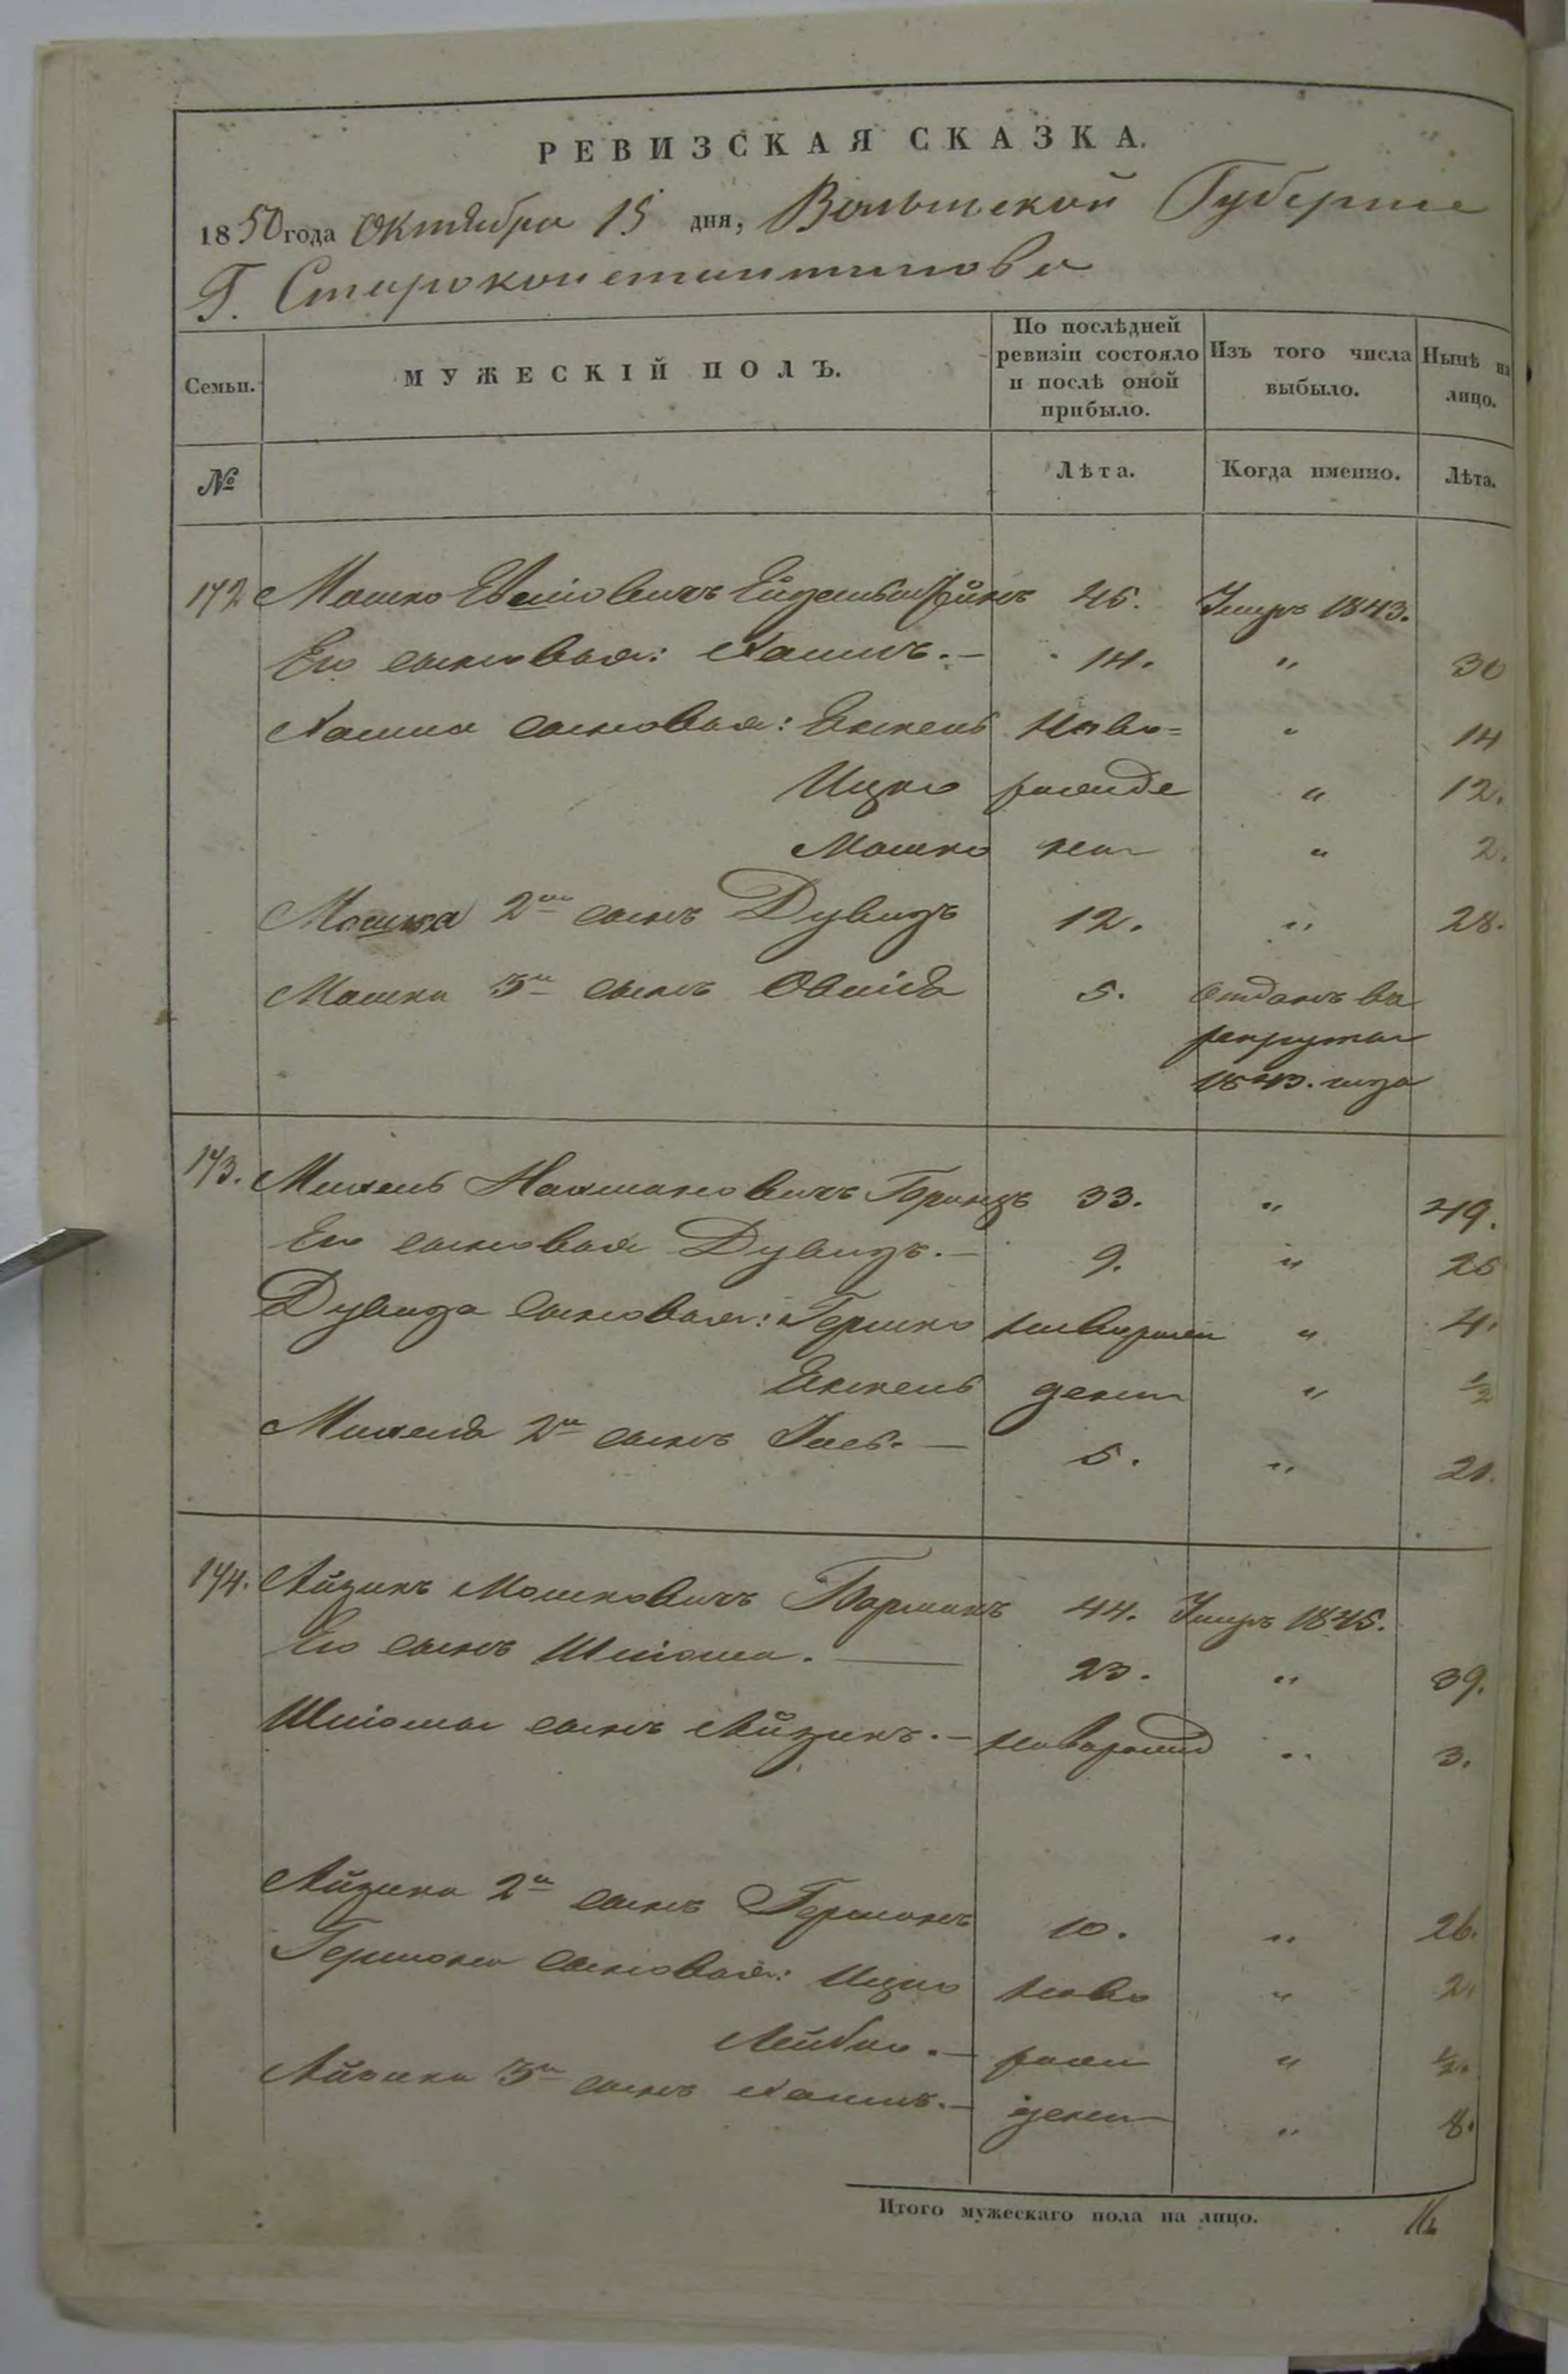 РЕВИЗСКАЯ СКАЗКА.
1850 года Октября 15 дня, Волынской Губернии
Г. Староконстантинова
Семьи. МУЖЕСКІЙ ПОЛЪ. По послѣдней ревизіи состояло и послѣ оной прибыло. Изъ того числа выбыло. Нынѣ на лицо.
№ Лѣта. Когда именно. Лѣта.
172 Мошко 45. Умеръ 1843.
Его сыновья: Хаимъ.- 14. " 30
Хаима сыновья: Енкель ново= " 14
Ицко рожде " 12.
Мошко нет " 2.
Мошка 2й сынъ Дувидъ 12. " 28.
Мошки 3й сынъ 5. Отданъ въ
рекруты
1843. года
173. Михель Нахмановичъ 33. " 49.
Его сыновья Дувидъ.- 9. " 25
Дувида сыновья: Гершко новорож " 4.
Енкель ден " ½
Михеля 2й сынъ 5. " 21.
174. Айзикъ Мошковичъ 44. Умеръ 1845.
Его сынъ Шліома. 23. " 39.
Шліомы сынъ Айзикъ.- новорожд " 3.
Айзика 2й сынъ Гершонъ 10. " 26.
Гершона сыновья: Ицко ново " 2.
Лейбко.- рож " ½.
Айзика 3й сынъ Хаимъ.- ден " 8.
Итого мужескаго пола на лицо.